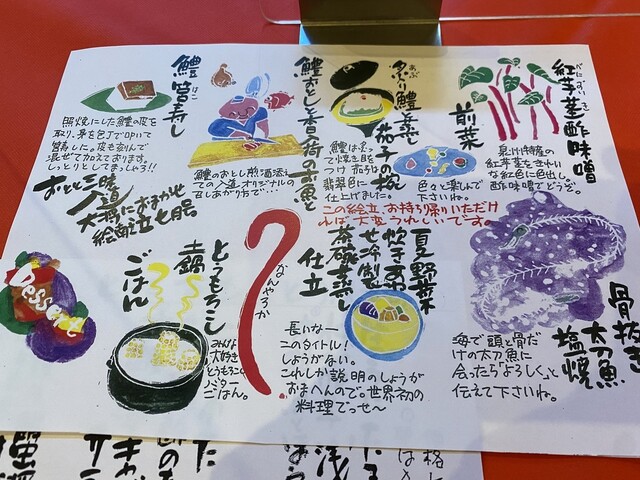 紅芋茎酢味噌
べにずいき
泉州特産の
紅芋茎をきれい
な紅色に色出し。
酢味噌でどうぞ。
前菜
色々と楽しんで
下さいね。
炙り鱧と
あぶ
茄子の椀
鱧は炙っ
て焼き目を
つけ 茄子は
翡翠色に
仕上げました。
鱧おとし・香の街のお魚と
鱧のおとし煎酒添え
ての入造オリジナルの
召しあがり方で…
鱧 筥寿し
はこ
照焼にした鱧の皮を
取り、身を包丁で叩いて
筥寿しに。皮も刻んで
混ぜて加えております。
しっとりとしてまっしゃろ!!
おとと三昧
大将におまかせ
絵献立七品
この絵立、お持ち帰りいただけ
れば大変うれしいです。
骨抜き
太刀魚
塩焼
海で頭と骨だ
けの太刀魚に
会ったら「よろしく」と
伝えて下さいね。
夏野菜
炊きあわ
せ冷製
茶碗蒸し
仕立
長いなー
このタイトル!
しょうがない。
これしか説明のしょうが
おまへんので。世界初の
料理でっせ〜
なんやろか
とうもろこし
土鍋
ごはん
みんな
大好き
とうもろこし
バター
ごはん。
Dessert